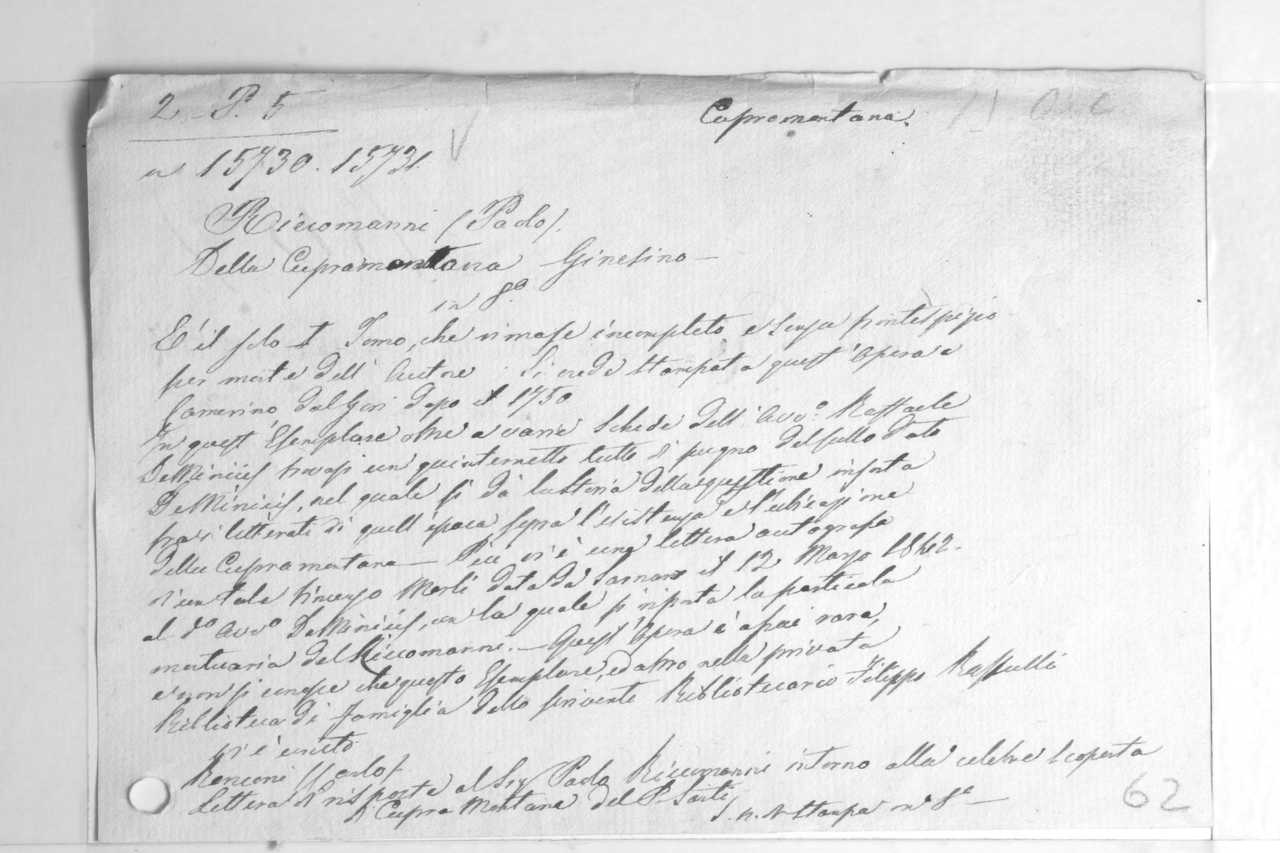 2 - P. 5
Cupromontana.
n 15730. 15731.
Riccomanni (Paolo).
Della Cupramontana Ginesina —
in 8.º
E' il solo I Tomo, che rimase incompleto e senza frontespizio
per morte dell' Autore. Si crede stampata quest' Opera a
Camerino dal Gori dopo il 1750
In quest' Esemplare oltre a varie schede dell' Avv.º Raffaele
De Minicis trovasi un quinternetto tutto di pugno del sullodato
De Minicis, nel quale si dà la storia della questione insorta
fra i litterati di quell' epoca sopra l'esistenza e l'ubicazione
della Cupramontana — Più vi è una lettera autografa
di un tale Vincenzo Merli data da Sarnano il 12 Marzo 1842.
al dº Avvº De Minicis, con la quale si riporta la particola
mortuaria del Riccomanni. — Quest' Opera è assai rara,
e non si conosce che questo Esemplare, ed altro nella privata
Biblioteca di famiglia dello scrivente Bibliotecario Filippo Raffaelli
Vi è unito
Ronconi (Carlo)
Lettera di risposta al Sig Paolo Riccomanni intorno alla celebre scoperta
di Cupra Montana del P. Sarti
S. n. di Stampa in 8º —
62